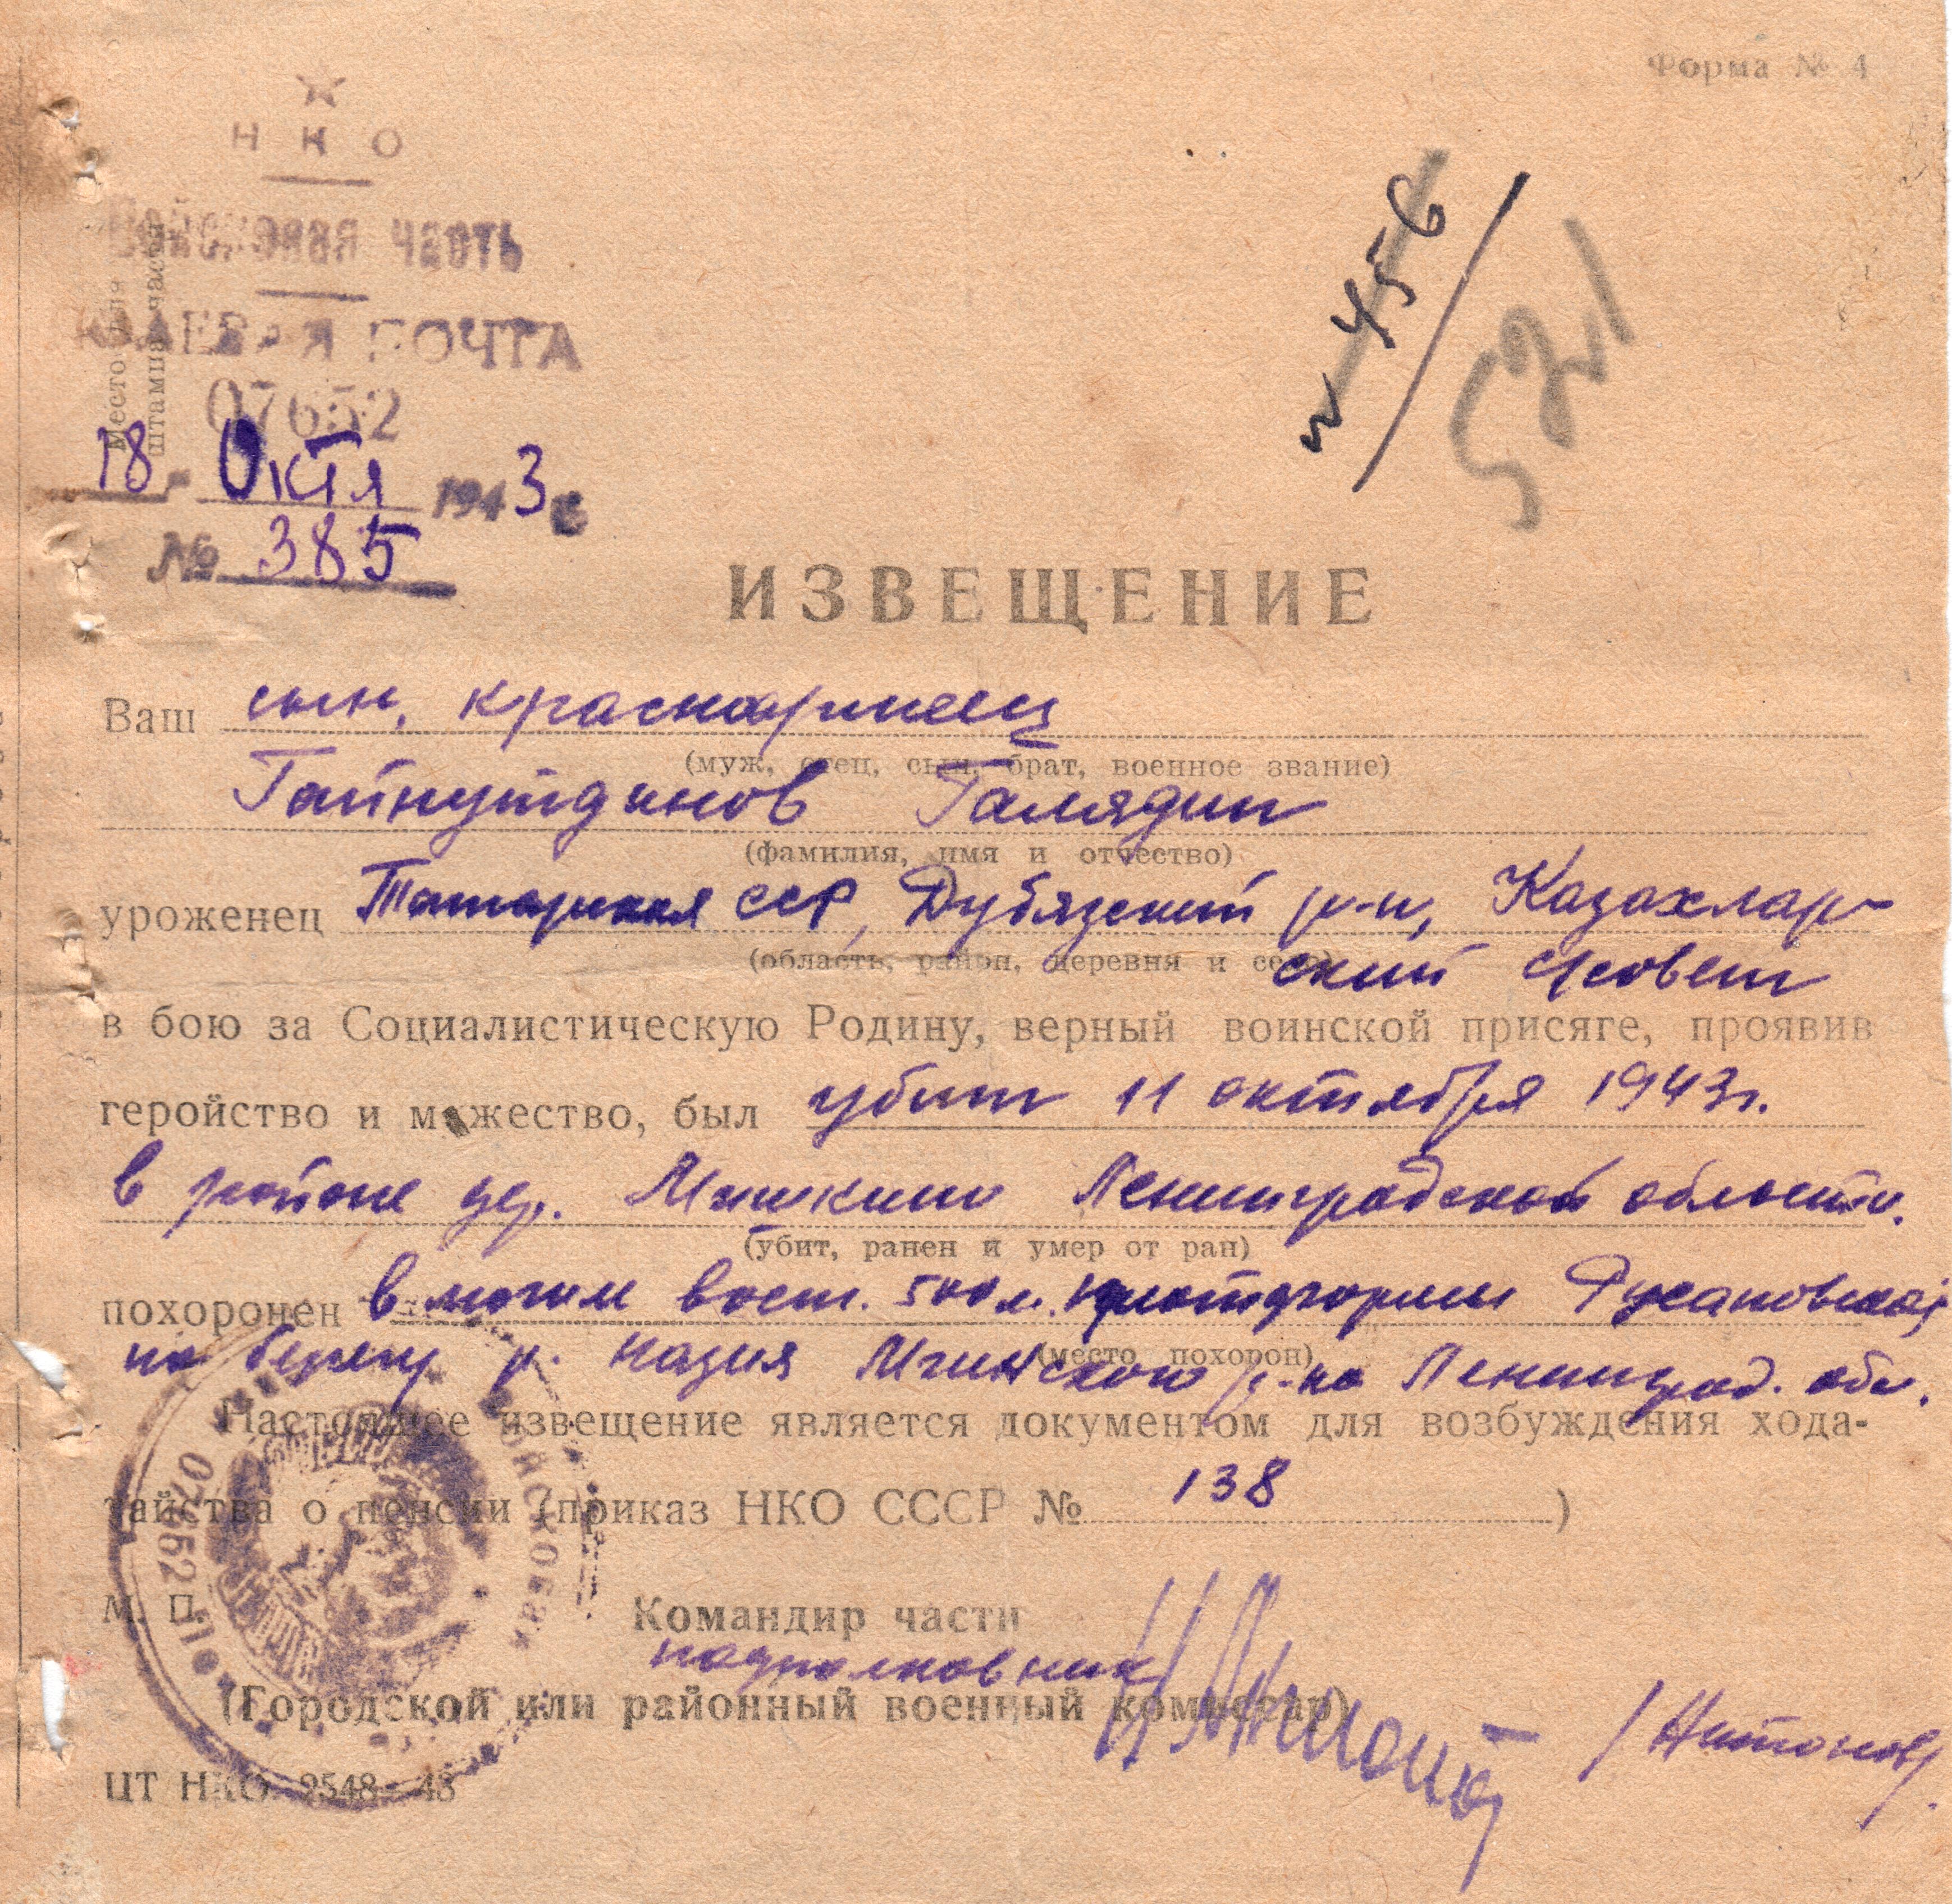 Форма № 4
НКО
Войсковая часть
ПОЛЕВАЯ ПОЧТА
07652
Место для
штампа части
18. Октя 1943 г
№ 385
№ 456 / 521
ИЗВЕЩЕНИЕ
Ваш сын, красноармеец
(муж, отец, сын, брат, военное звание)
Гайнутдинов Галядин
(фамилия, имя и отчество)
уроженец Татарская ССР, Дубязский р-н, Казахлар-
(область, район, деревня и село)
ский с/совет
в бою за Социалистическую Родину, верный воинской присяге, проявив
геройство и мужество, был убит 11 октября 1943г.
в районе дер. Мишкино Ленинградской области.
(убит, ранен и умер от ран)
похоронен в могиле вост. 500 м. платформы Русановская
(место похорон)
на берегу р. Назия Мгинского р-на Ленинград. обл.
Настоящее извещение является документом для возбуждения хода-
тайства о пенсии (приказ НКО СССР № 138)
М. П.
Командир части
подполковник
(Городской или районный военный комиссар)
/Антонов/
ЦТ НКО 2548—43
ВОЙСКОВАЯ
07652